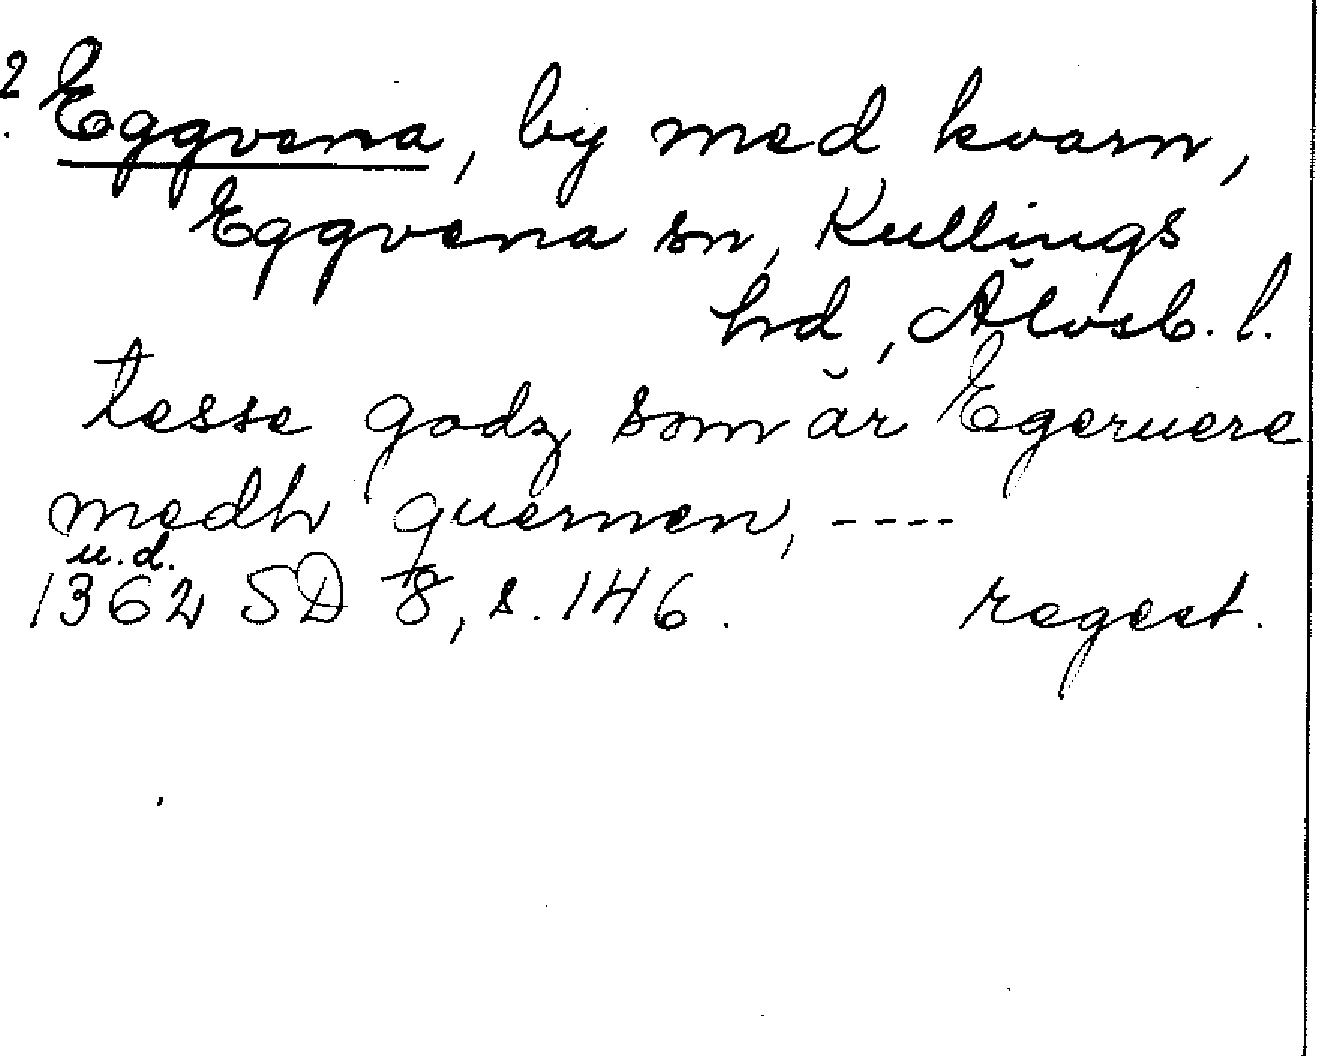 2. Eggvena, by med kvarn,
Eggvena sn, Kullings
hd, Älvsb. l.
tesse godz som är Egeruere
medh quernen, ----
u.d.
1362 SD 8, s. 146. regest.